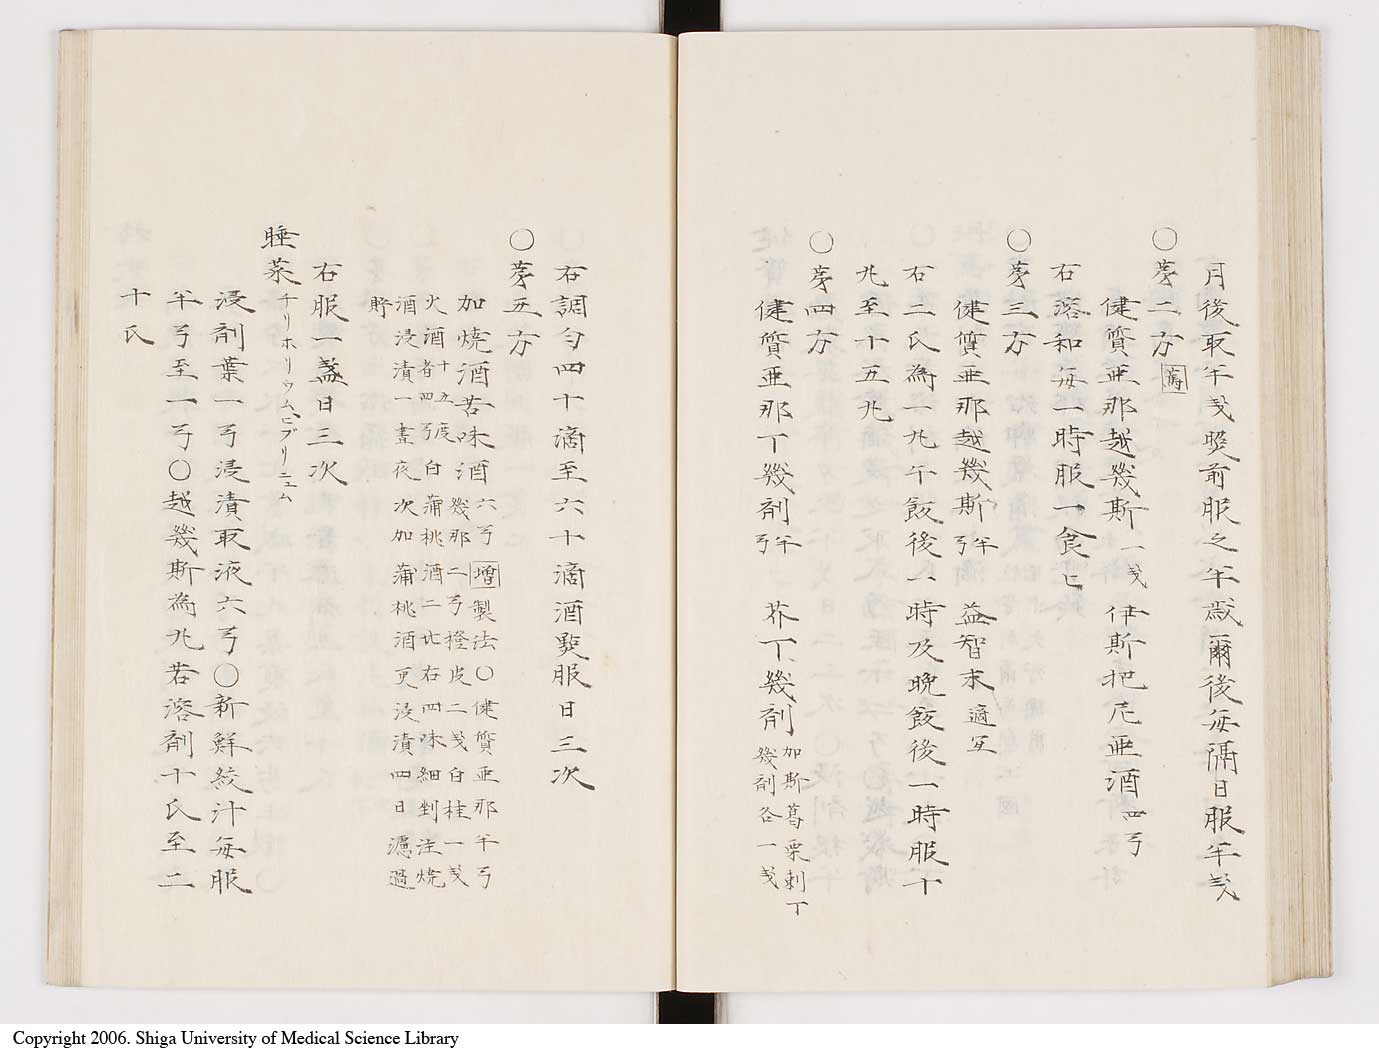 月後取半戔煚前服之半歳爾後毎隔日服半戔
〇苐二方 舊
健質亜那越幾斯 一戔 伊斯把尼亜酒 四弓
右溶和毎一時服一食匕
〇苐三方
健質亜那越幾斯 半弓 益智末 適宜
右二氏為一丸午飯後一時及晩飯後一時服十
丸至十五丸
〇苐四方
健質亜那丁幾剤 半弓 芥丁幾剤 加斯葛栗剌丁
幾剤各一戔
右調匀四十滴至六十滴酒㸃服日三次
〇苐五方
加焼酒苦味酒 六弓 増 製法〇健質亜那半弓
幾那二弓橙皮二戔白桂一戔
火酒 十五度者 四弓白蒲桃酒二ヒ右四味細剉注焼
酒浸漬一晝夜次加蒲桃酒更浸漬四日濾過
貯
右服一盞日三次
睡菜 チリホリウムヒブリニュム
浸剤葉一弓浸漬取液六弓〇新鮮絞汁毎服
半弓至一弓〇越幾斯為丸若溶剤十氏至二
十氏
Copyright 2006. Shiga University of Medical Science Library